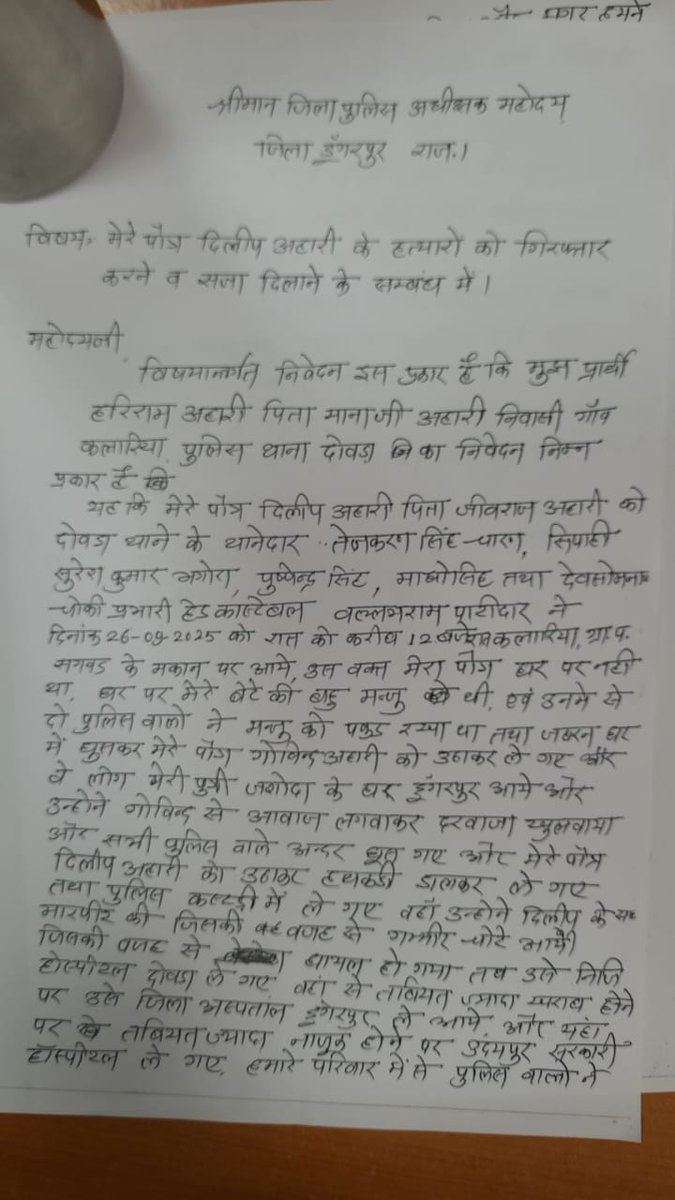 प्रकार हमने
श्रीमान जिला पुलिस अधीक्षक महोदय
जिला डूंगरपुर राज.।
विषय:- मेरे पौत्र दिलीप अहारी के हत्यारो को गिरफ्तार
करने व सजा दिलाने के सम्बंध में।
महोदयजी,
विषयान्तर्गत निवेदन इस प्रकार है कि मुझ प्रार्थी
हरिराम अहारी पिता मानाजी अहारी निवासी गाँव
कलारिया पुलिस थाना दोवडा का निवेदन निम्न
प्रकार है कि
यह कि मेरे पौत्र दिलीप अहारी पिता जीवराज अहारी को
दोवडा थाने के थानेदार तेजकरण सिंह चारण, सिपाही
सुरेश कुमार भगोरा, पुष्पेन्द्र सिंह, माधोसिंह तथा देवसोमनाथ
चौकी प्रभारी हेड कास्टेबल वल्लभराम पाटीदार ने
दिनांक 26-09-2025 को रात को करीब 12 बजे कलारिया, ग्रा.प.
के मकान पर आये, उस वक्त मेरा पौत्र घर पर नही
था, घर पर मेरे बेटे की बहु मन्जु थी, एवं उनमे से
दो पुलिस वालो ने मन्जु को पकड रखा था तथा जबरन घर
में घुसकर मेरे पौत्र गोविन्द अहारी को उठाकर ले गए और
वे लोग मेरी पुत्री जशोदा के घर डूंगरपुर आये और
उन्होने गोविन्द से आवाज लगवाकर दरवाजा खुलवाया
और सभी पुलिस वाले अन्दर घुस गए और मेरे पौत्र
दिलीप अहारी को उठाकर हथकडी डालकर ले गए
तथा पुलिस कस्टडी में ले गए वहाँ उन्होने दिलीप के साथ
मारपीट की जिसकी वजह से गम्भीर चोटे आयी
जिसकी वजह से घायल हो गया तब उसे निजि
होस्पीटल दोवडा ले गए वहां से तबियत ज्यादा खराब होने
पर उसे जिला अस्पताल डूंगरपुर ले आये, और यहां
पर तबियत ज्यादा नाजुक होने पर उदयपुर सरकारी
हॉस्पीटल ले गए, हमारे परिवार में से पुलिस वालो ने